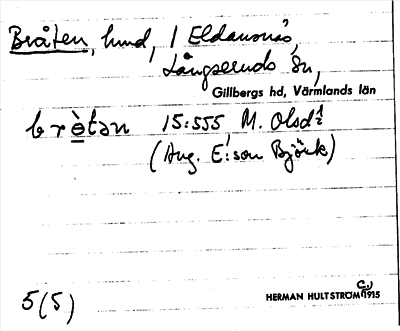 Bråten, hmd, i Eldansnäs,
Långseruds sn,
Gillbergs hd, Värmlands län
br<u>ò</u>tən 15:555, M. Olsd:r
(Aug. E:son Björk)
5(5)
HERMAN HULTSTRÖM C.) 1915